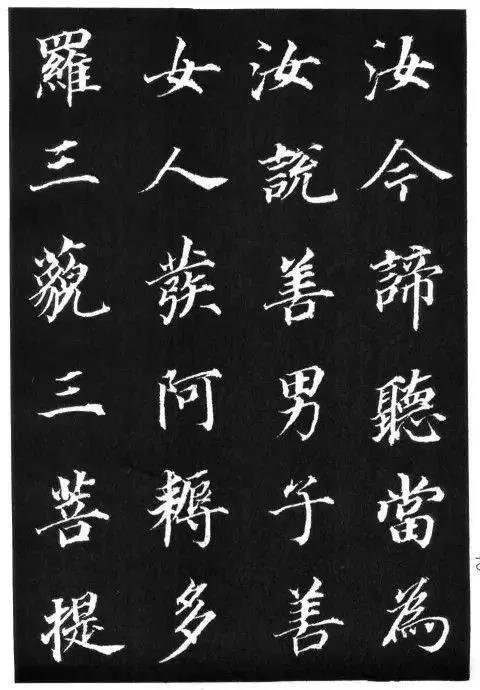 汝今諦聽當為
汝說善男子善
女人發阿耨多
羅三藐三菩提